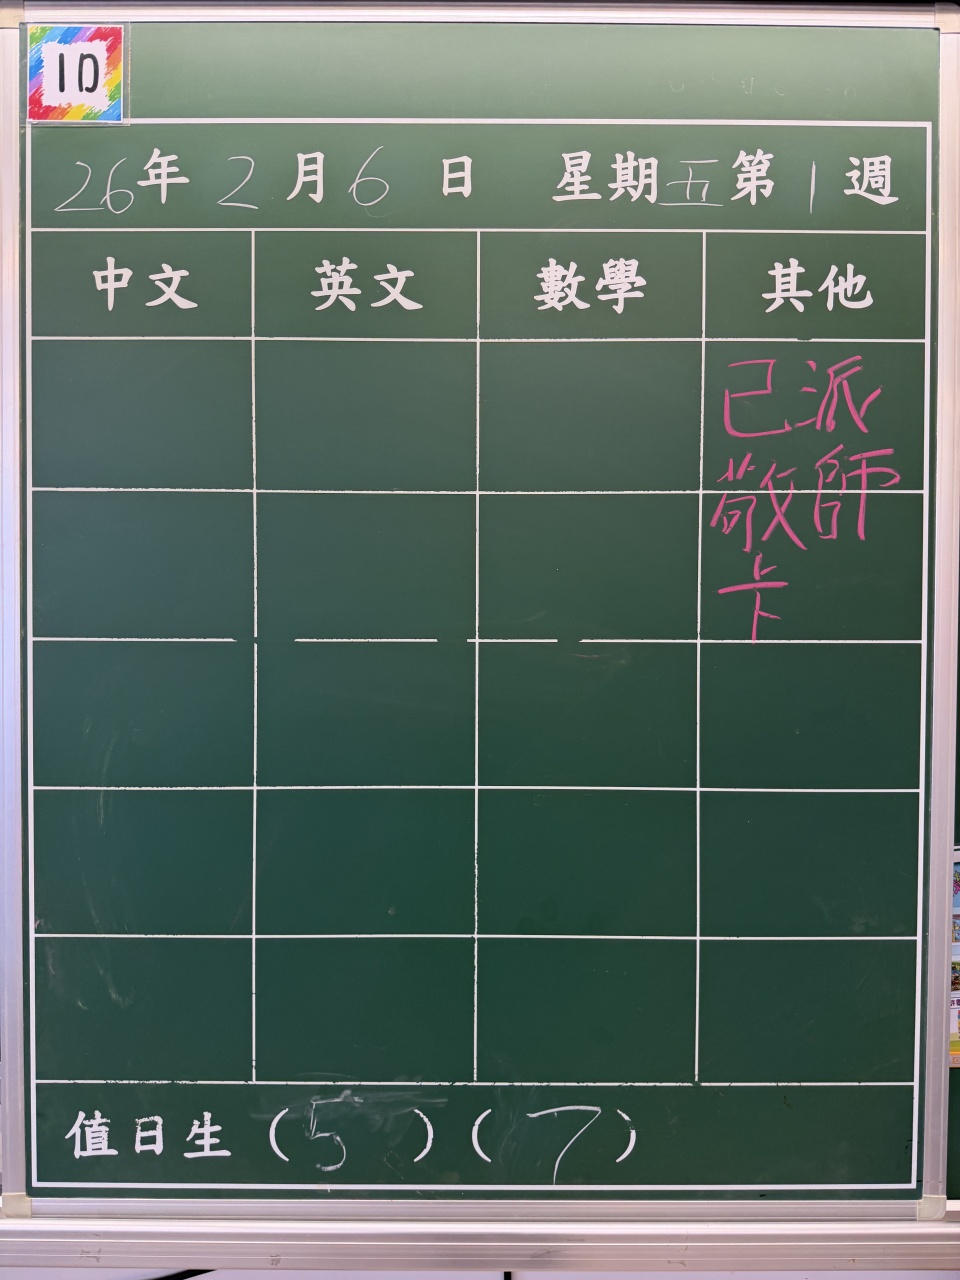 1D
26年2月6日 星期五第1週
中文 英文 數學 其他
已派
敬師
卡
值日生 (5) (7)